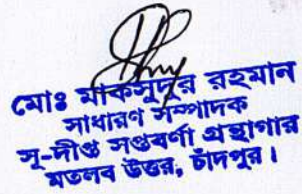 মোঃ মাকসুদুর রহমান
সাধারণ সম্পাদক
সূ-দীপ্ত সপ্তবর্ণা গ্রন্থাগার
মতলব উত্তর, চাঁদপুর।